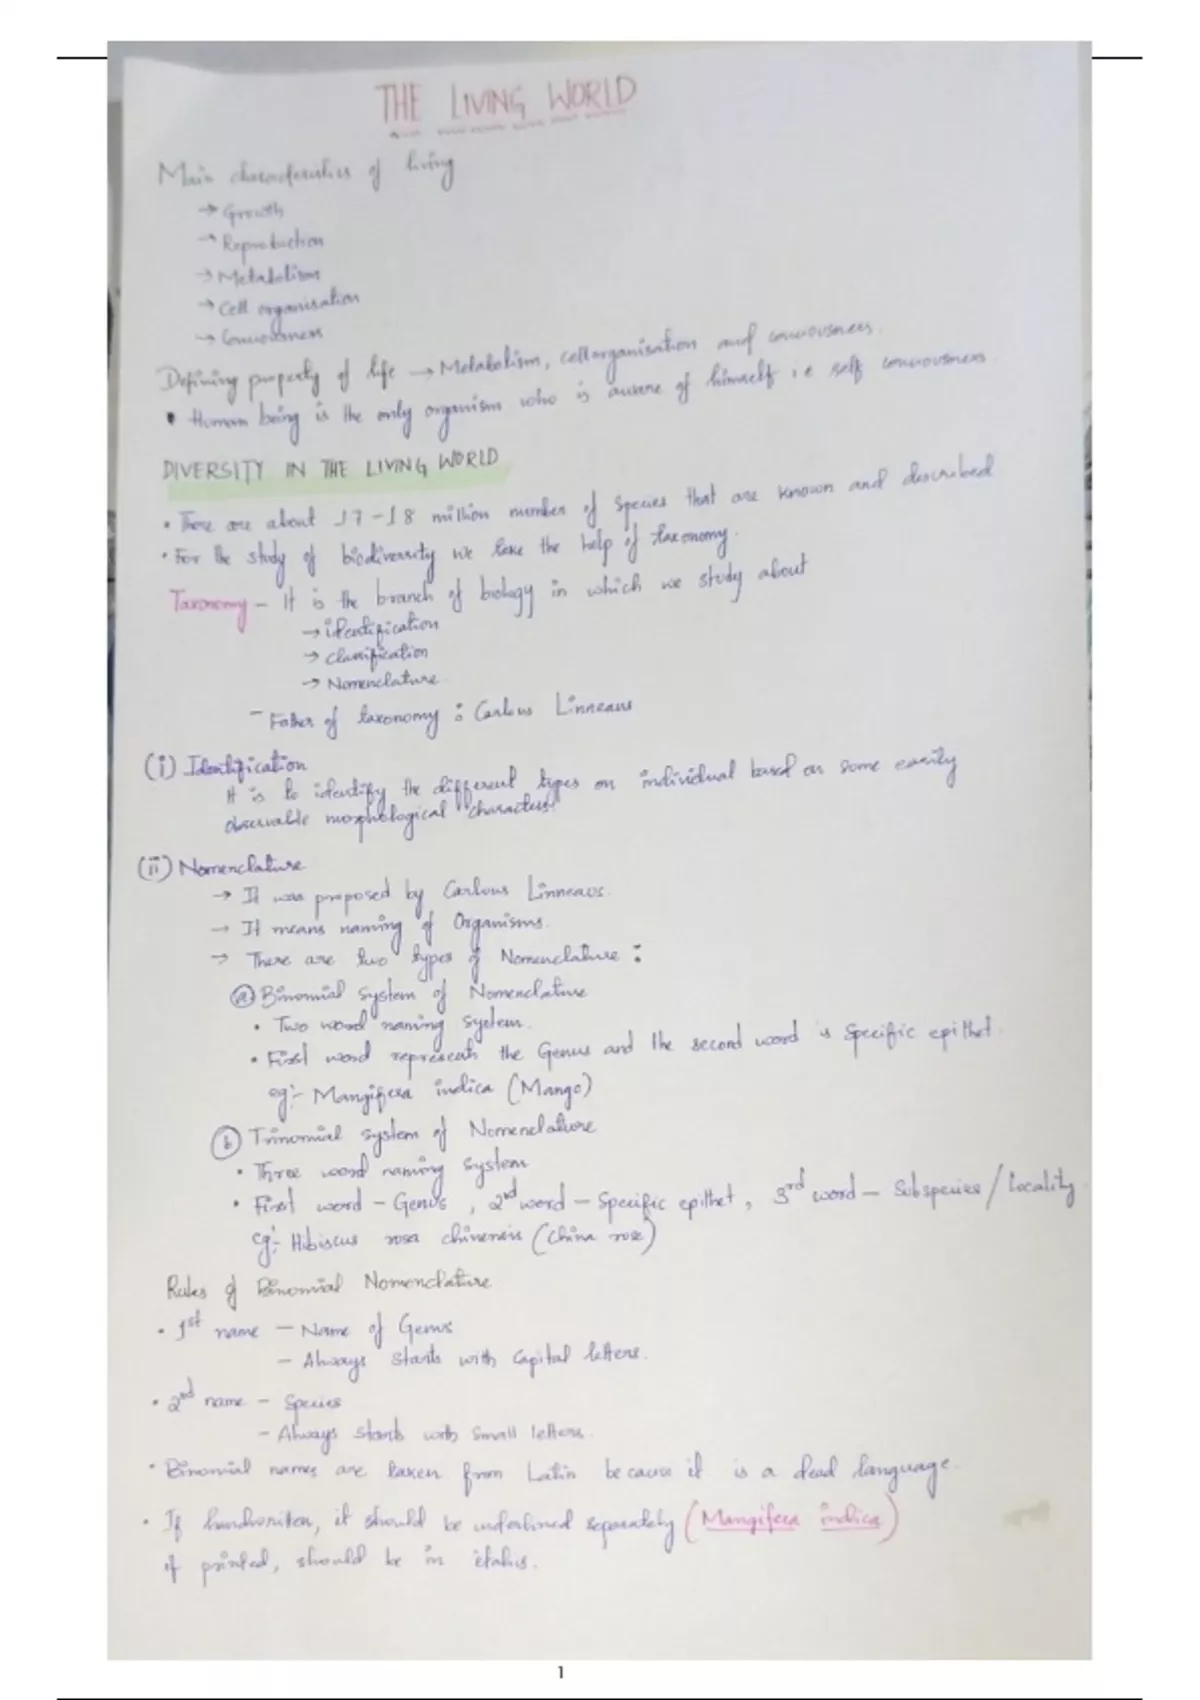 THE LIVING WORLD
Main characteristics of living
→ Growth
→ Reproduction
→ Metabolism
→ Cell organisation
→ Conciousness
Defining property of life → Metabolism, cellorganisation and conciousness.
• Human being is the only organism who is aware of himself i.e self conciousness
DIVERSITY IN THE LIVING WORLD
• There are about 17-18 million number of species that are known and described
• For the study of biodiversity we take the help of taxonomy.
Taxonomy – It is the branch of biology in which we study about
→ identification
→ classification
→ Nomenclature.
– Father of taxonomy : Carlous Linneaus
(i) Identification
It is to identify the different types on individual based on some easily
observable morphological characters.
(ii) Nomenclature
→ It was proposed by Carlous Linneaus.
→ It means naming of Organisms.
→ There are two types of Nomenclature :
(a) Binomial system of Nomenclature
• Two word naming system.
• First word represents the Genus and the second word is specific epithet.
eg:- Mangifera indica (Mango)
(b) Trinomial system of Nomenclature
• Three word naming system
• First word – Genus, 2nd word – Specific epithet, 3rd word – Subspecies / locality
eg:- Hibiscus rosa chinensis (China rose)
Rules of Binomial Nomenclature
• 1st name – Name of Genus
– Always starts with Capital letters.
• 2nd name – Species
– Always starts with small letters.
• Binomial names are taken from Latin because it is a dead language.
• If handwriten, it should be underlined separately (Mangifera indica)
if printed, should be in italics.
1